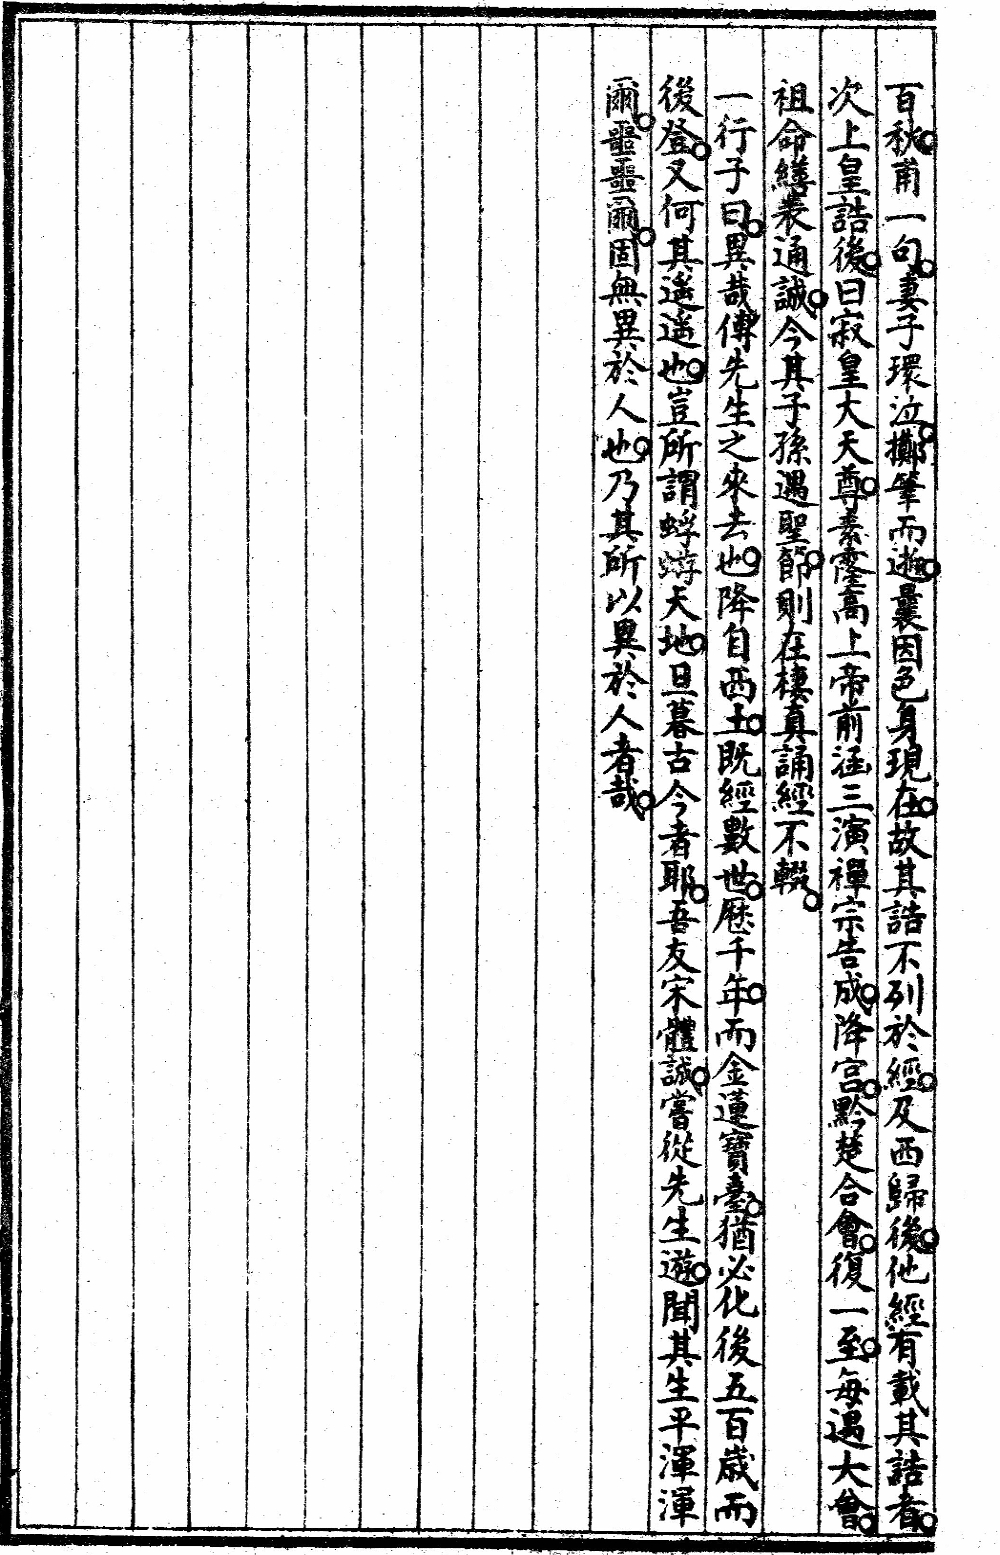 百秋甫一句妻子環泣擲筆而逝曩因色身現在故其誥不列於經及西歸後他經有載其誥者
次上皇誥後曰寂皇大天尊素靈高上帝前涵三演禪宗告成降宫黔楚合會復一至每遇大會
祖命繕表通誠今其子孫遇聖節則在棲真誦經不輟
一行子曰異哉傅先生之來去也降自西土既經數世歷千年而金蓮寶臺猶必化後五百歲而
後登又何其遙遙也豈所謂蜉蝣天地旦暮古今者耶吾友宋體誠嘗從先生遊聞其生平渾渾
爾噩噩爾固無異於人也乃其所以異於人者哉